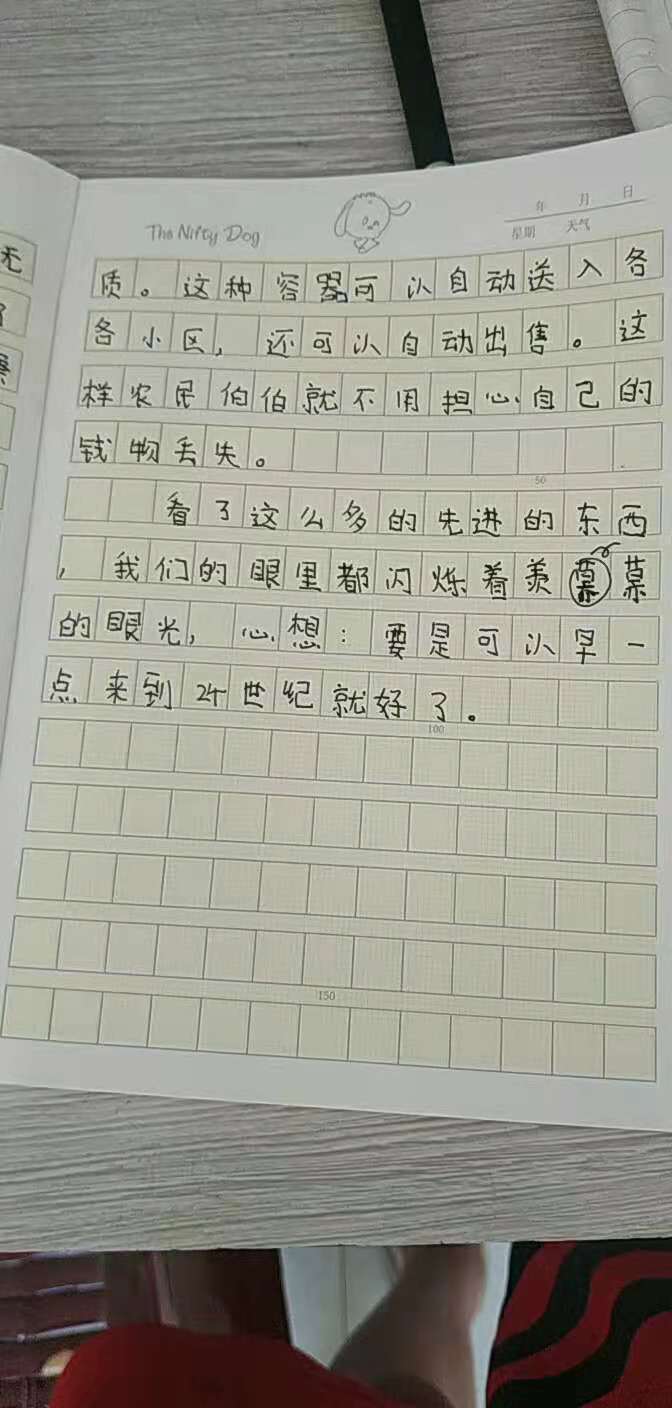 The Nifty Dog
年 月 日
星期 天气
质。这种容器可以自动送入各
各小区，还可以自动出售。这
样农民伯伯就不用担心自己的
钱物丢失。
50
看了这么多的先进的东西
，我们的眼里都闪烁着羡慕
的眼光，心想：要是可以早一
点来到24世纪就好了。
100
150
无